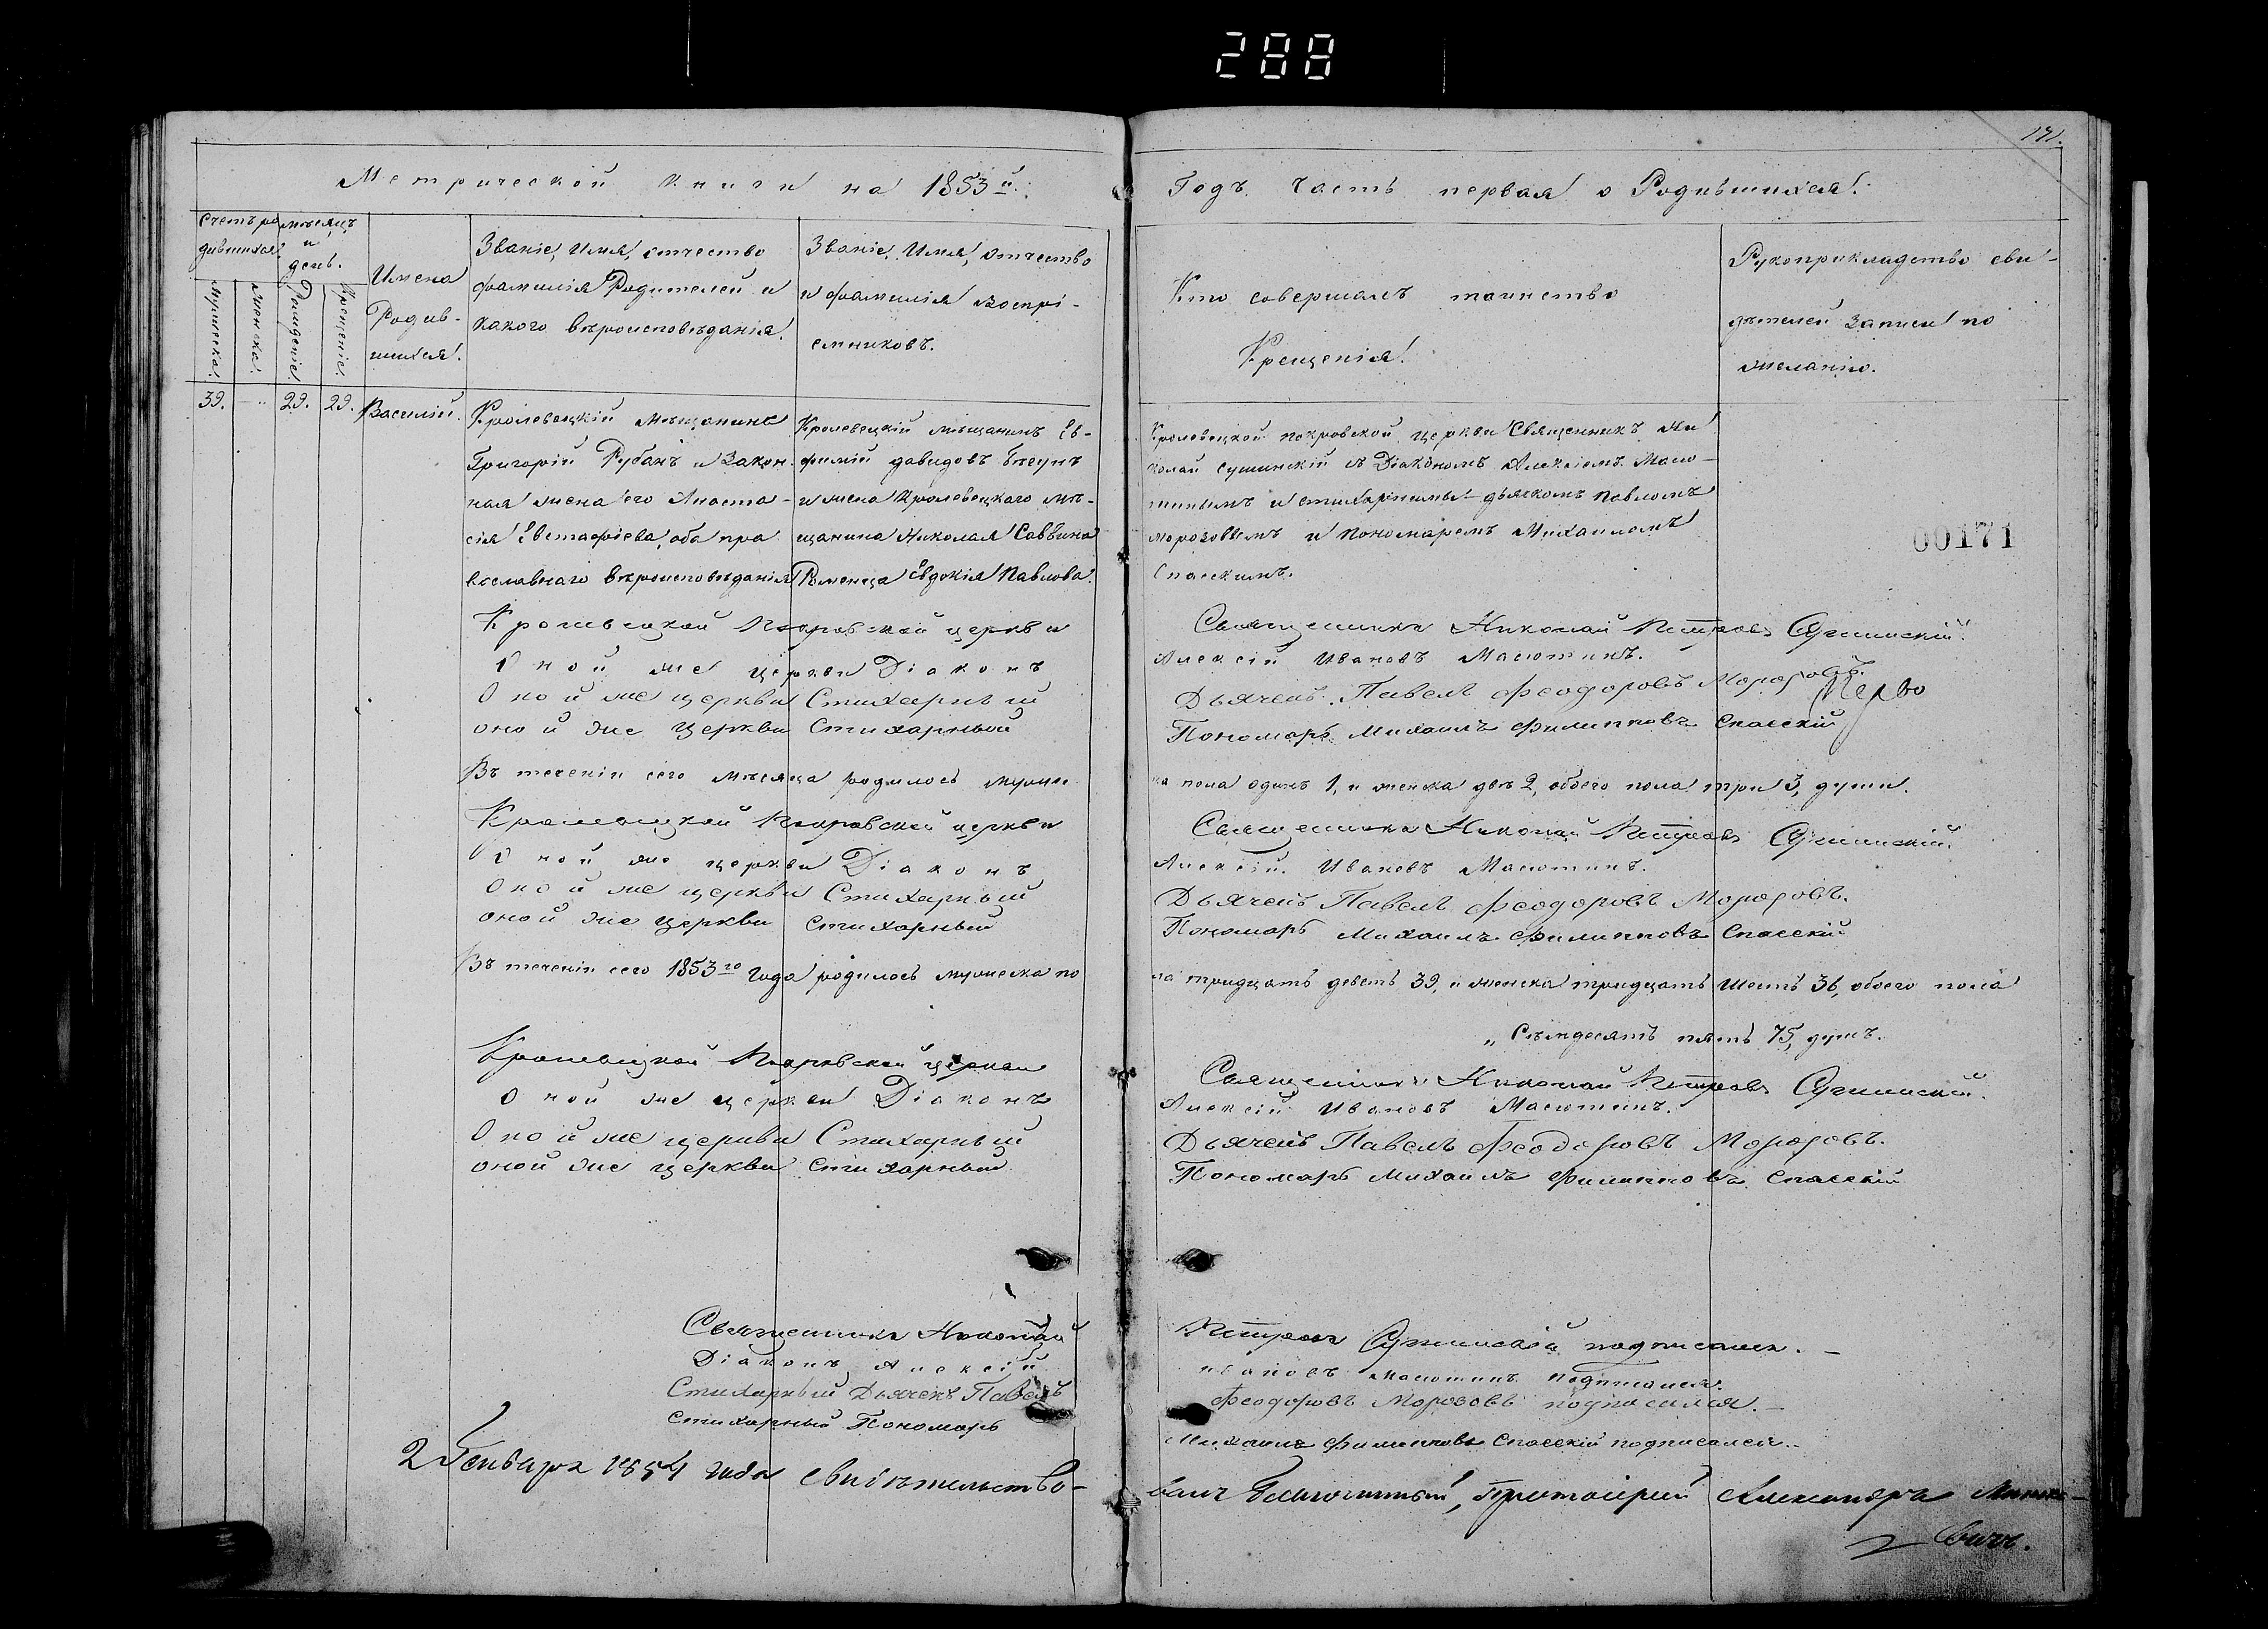 288
171.
Метрической книги на 1853й.
Годъ часть первая о Родившихся.
Счетъ ро
дившихся
мѣсяцъ
и
день.
Мужеска.
Женска.
Рожденіе.
Крещеніе.
Имена
Родив-
шихся.
Званіе, Имя, отчество
фамилія Родителей и
какого вѣроисповѣданія.
Званіе, Имя, отчество
и фамилія воспрі-
емниковъ.
Кто совершалъ таинство
Крещенія.
Рукоприкладство сви-
дѣтелей записи по
желанію.
39. - 29. 29. Василій.
Кролевецкій мѣщанинъ
Григорій Рубанъ и Закон-
ная жена его Анаста-
сія Евстафіева, оба пра
вославнаго вѣроисповѣданія
Кролевецкій мѣщанинъ Ев-
фимій давидовъ
и жена Кролевецкаго мѣ-
щанина Николая Саввина
Роменца Евдокія Павлова.
Кролевецкой покровской церкви Священникъ Ни
колай сушинскій съ Діакономъ Алексіемъ Масю-
тинымъ и стихарными дьячкомъ павломъ
морозовымъ и пономаремъ Михаиломъ
Спасскимъ.
00171
Кролевецкой Покровской церкви Священникъ Николай Петровъ Сушинскій.
Оной же церкви Діаконъ Алексій Ивановъ Масютинъ.
Оной же церкви Стихарный Дьячекъ Павелъ Феодоровъ Морозовъ.
оной же церкви Стихарный Пономарь Михаилъ Филипповъ Спасскій
Въ теченіи сего мѣсяца родилось мужес
ка пола одинъ 1, и женска двѣ 2, обоего пола три 3, души.
Кролевецкой Покровской церкви Священникъ Николай Петровъ Сушинскій.
Оной же церкви Діаконъ Алексій Ивановъ Масютинъ.
Оной же церкви Стихарный Дьячекъ Павелъ Феодоровъ Морозовъ.
оной же церкви стихарный Пономарь Михаилъ Филипповъ Спасскій
Въ теченіи сего 1853го года родилось мужеска по
ла тридцать девять 39, и женска тридцать шесть 36, обоего пола
„ Сѣмдесятъ пять 75, душъ.
Кролевецкой Покровской церкви Священникъ Николай Петровъ Сушинскій.
Оной же церкви Діаконъ Алексій Ивановъ Масютинъ.
Оной же церкви Стихарный Дьячекъ Павелъ Феодоровъ Морозовъ.
оной же церкви стихарный Пономарь Михаилъ Филипповъ Спасскій
Священникъ Николай Петровъ Сушинскій подписался. -
Діаконъ Алексій Ивановъ Масютинъ подписался.
Стихарный Дьячекъ Павелъ Феодоровъ Морозовъ подписался. -
стихарный Пономарь Михаилъ Филипповъ Спасскій подписался.
2 Генваря 1854 года свидѣтельство-
валъ Благочинный, Протоіерей Александръ
вичъ.